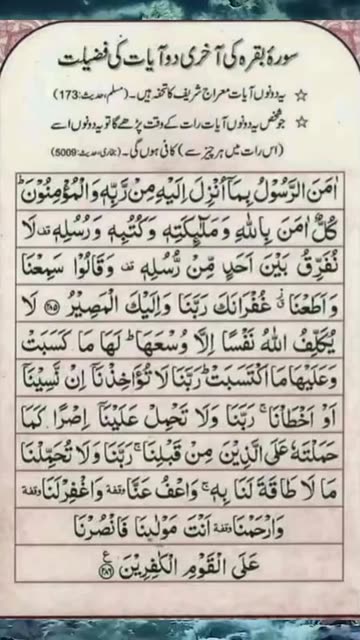 سورۂ بقرہ کی آخری دو آیات کی فضیلت
☆ یہ دونوں آیات معراج شریف کا تحفہ ہیں۔ (مسلم، حدیث: 173)
☆ جو شخص یہ دونوں آیات رات کے وقت پڑھے گا تو یہ دونوں اسے
(اس رات میں ہر چیز سے) کافی ہوں گی۔ (بخاری، حدیث: 5009)
اٰمَنَ الرَّسُوْلُ بِمَاۤ اُنْزِلَ اِلَیْهِ مِنْ رَّبِّهٖ وَالْمُؤْمِنُوْنَ ؕ
كُلٌّ اٰمَنَ بِاللّٰهِ وَمَلٰٓىِٕكَتِهٖ وَكُتُبِهٖ وَرُسُلِهٖ ۫ لَا
نُفَرِّقُ بَیْنَ اَحَدٍ مِّنْ رُّسُلِهٖ ۫ وَقَالُوْا سَمِعْنَا
وَاَطَعْنَا ۫ غُفْرَانَكَ رَبَّنَا وَاِلَیْكَ الْمَصِیْرُ ﴿۲۸۵﴾ لَا
یُكَلِّفُ اللّٰهُ نَفْسًا اِلَّا وُسْعَهَا ؕ لَهَا مَا كَسَبَتْ
وَعَلَیْهَا مَا اكْتَسَبَتْ ؕ رَبَّنَا لَا تُؤَاخِذْنَاۤ اِنْ نَّسِیْنَاۤ
اَوْ اَخْطَاْنَا ۚ رَبَّنَا وَلَا تَحْمِلْ عَلَیْنَاۤ اِصْرًا كَمَا
حَمَلْتَهٗ عَلَی الَّذِیْنَ مِنْ قَبْلِنَا ۚ رَبَّنَا وَلَا تُحَمِّلْنَا
مَا لَا طَاقَةَ لَنَا بِهٖ ۚ وَاعْفُ عَنَّا وقفة وَاغْفِرْ لَنَا وقفة
وَارْحَمْنَا وقفة اَنْتَ مَوْلٰىنَا فَانْصُرْنَا
عَلَی الْقَوْمِ الْكٰفِرِیْنَ ﴿۲۸۶﴾ ع